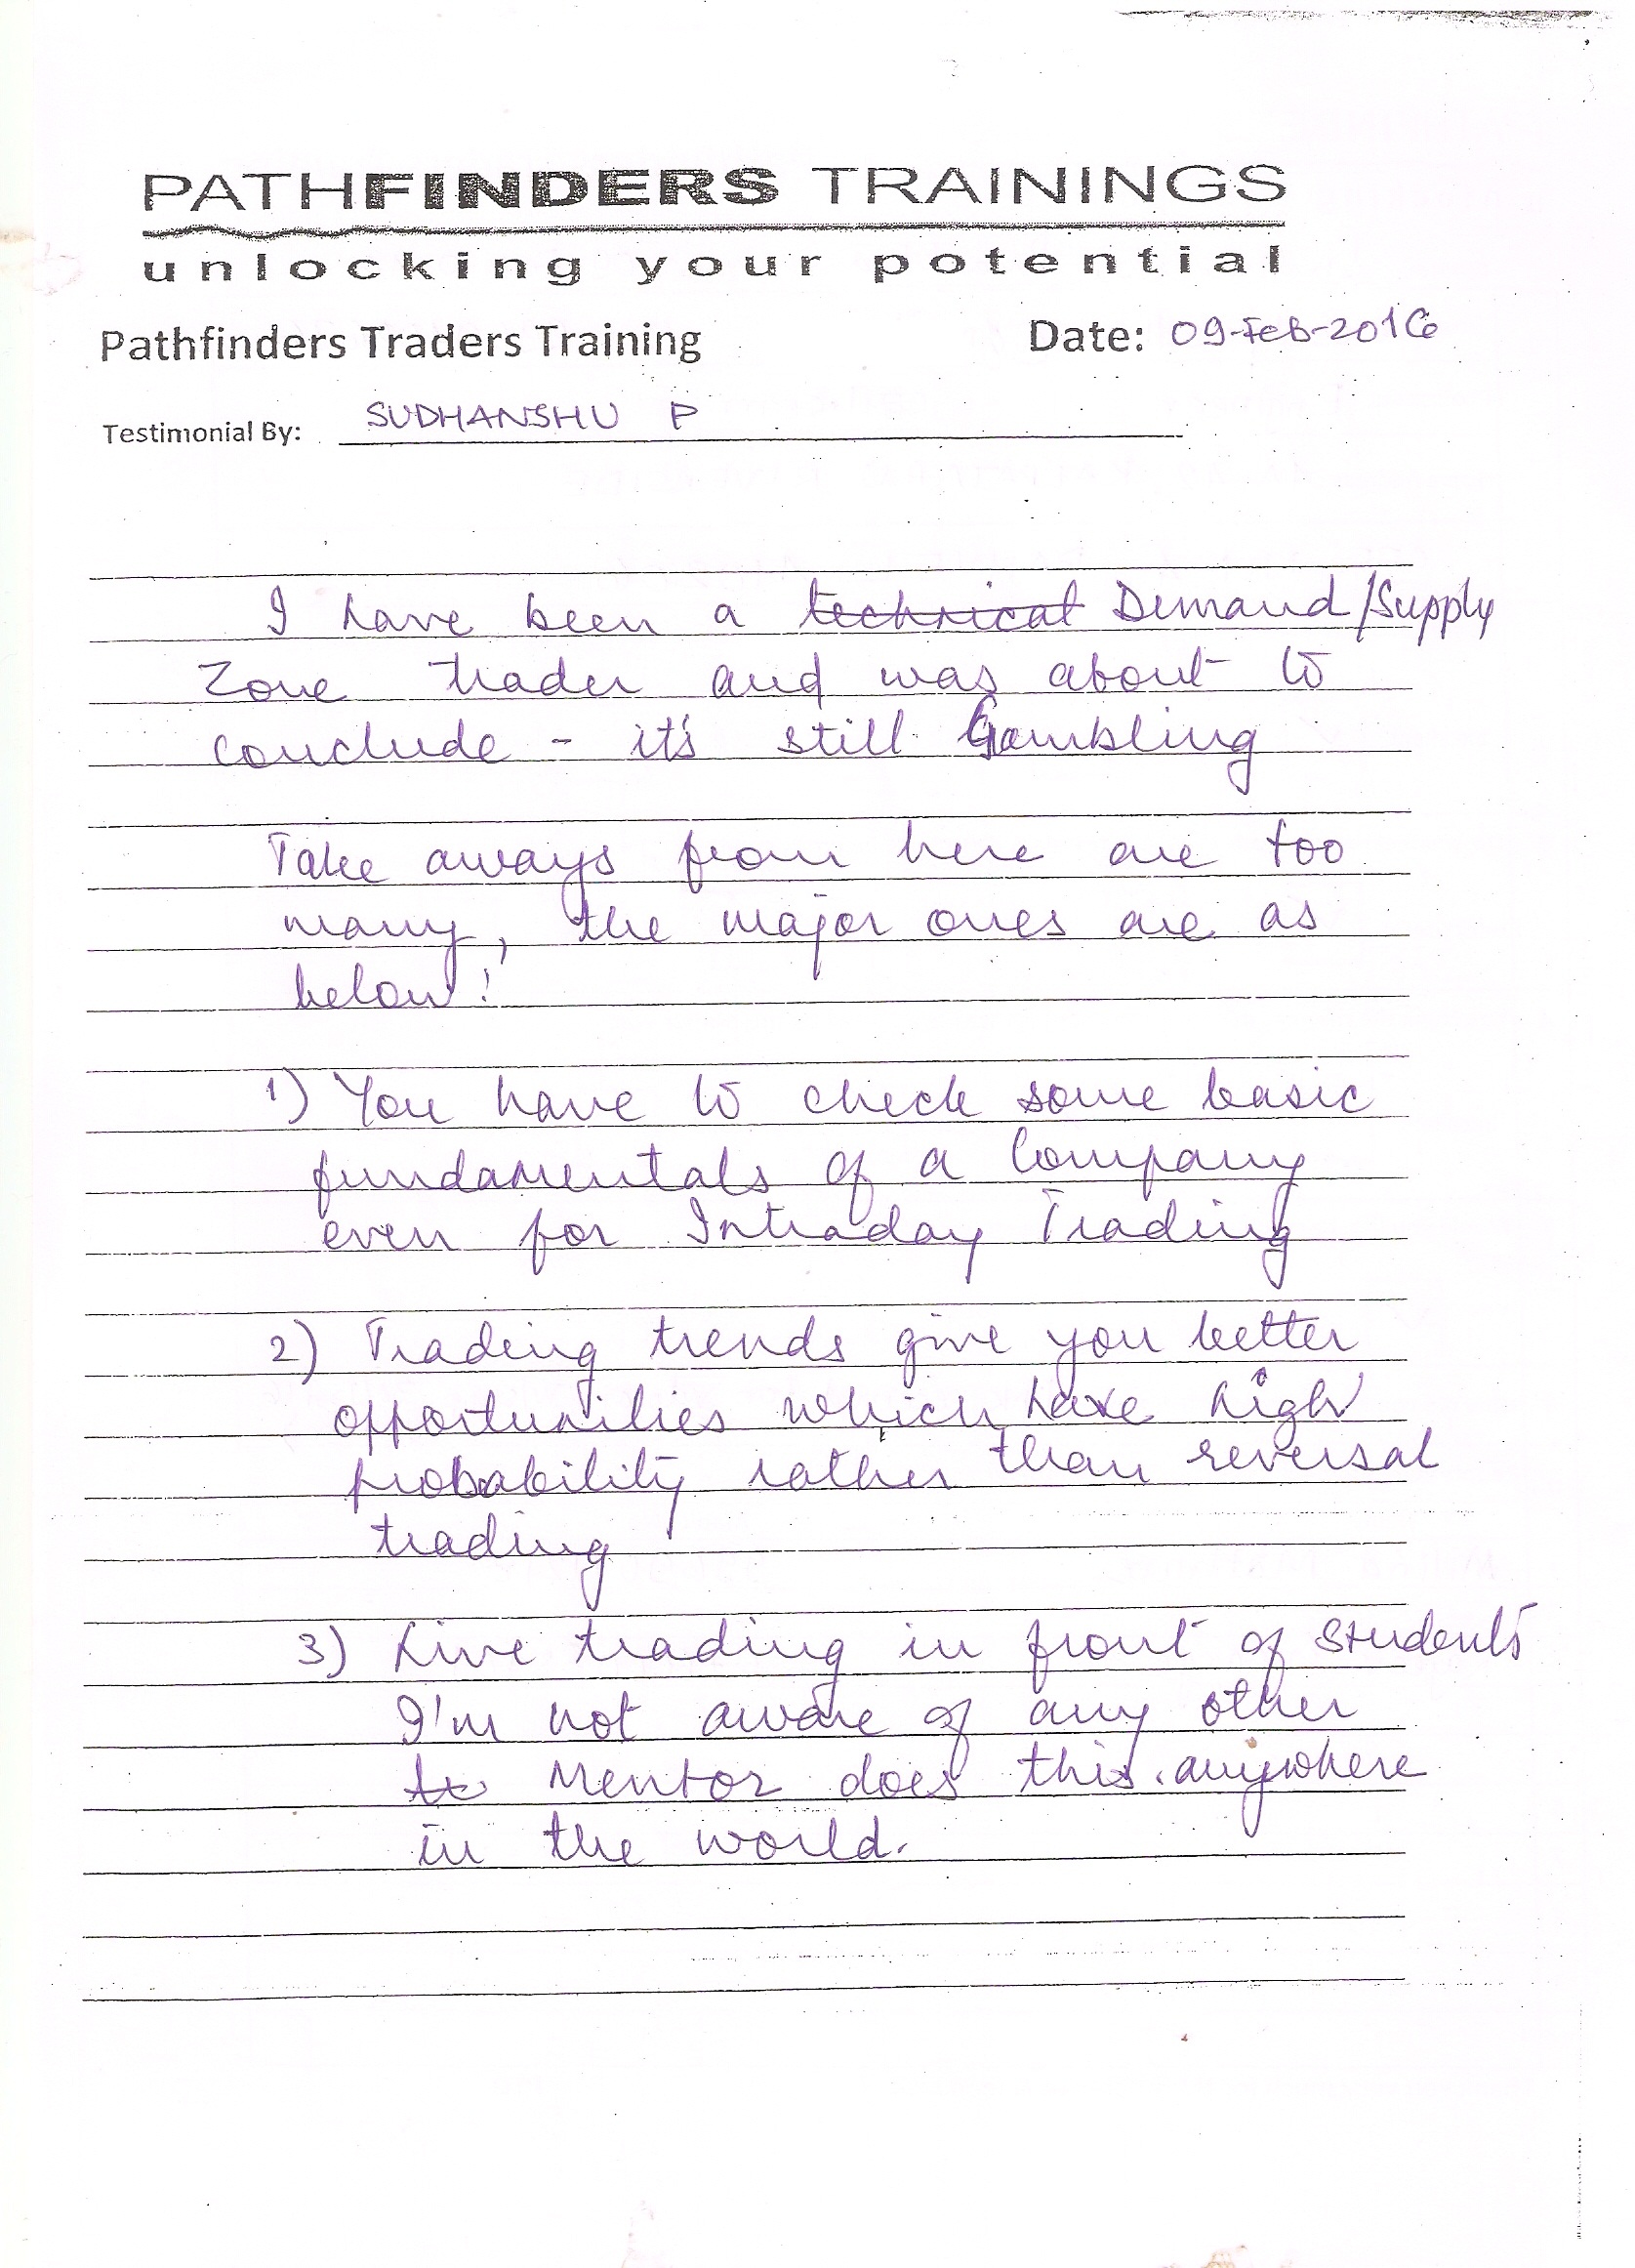 PATHFINDERS TRAININGS
unlocking your potential
Pathfinders Traders Training Date: 09-Feb-2016
Testimonial By: SUDHANSHU P
I have been a technical Demand/Supply
Zone trader and was about to
conclude - it's still Gambling
Take aways from here are too
many, the major ones are as
below!
1) You have to check some basic
fundamentals of a Company
even for Intraday Trading
2) Trading trends give you better
opportunities which have high
probability rather than reversal
trading
3) Live trading in front of students
I'm not aware of any other
Mentor does this anywhere
in the world.